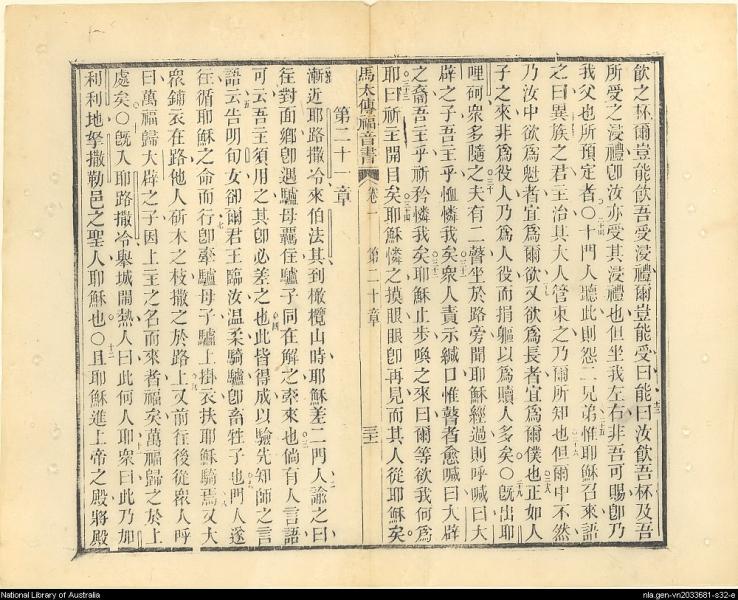 飲之杯爾豈能飲吾受浸禮爾豈能受曰能曰汝飲吾杯及吾
所受之浸禮卽汝亦受其浸禮也但坐我左右非吾可賜卽乃
我父也所預定者○十門人聽此則怨二兄弟惟耶穌召來語
之曰異族之君主治其大人管束之乃爾所知也但爾中不然
乃汝中欲爲魁者宜爲爾欲又欲爲長者宜爲爾僕也正如人
子之來非爲役人乃爲人役而捐軀以爲贖人多矣○旣出耶
哩砢衆多隨之夫有二瞽坐於路旁聞耶穌經過則呼喊曰大
辟之子吾主乎恤憐我矣衆人責示緘口惟瞽者愈喊曰大辟
之裔吾主乎祈矜憐我矣耶穌止步喚之來曰爾等欲我何爲
耶曰祈主開目矣耶穌憐之摸眼眼卽再見而其人從耶穌矣
馬太傳福音書 卷一 第二十章 三十二
第二十一章
漸近耶路撒冷來伯法其到橄欖山時耶穌差二門人諭之曰
往對面鄉卽遇驢母羈住驢子同在解之牽來也倘有人言語
可云吾主須用之其卽必差之也此皆得成以驗先知師之言
語云告明旬女卻爾君王臨汝温柔騎驢卽畜牲子也門人遂
往循耶穌之命而行卽牽驢母子驢上掛衣扶耶穌騎焉又大
衆鋪衣在路他人斫木之枝撒之於路上又前往後從衆人呼
曰萬福歸大辟之子因上主之名而來者福矣萬福歸之於上
處矣○旣入耶路撒冷舉城開熱人曰此何人耶衆曰此乃加
利利地拏撒勒邑之聖人耶穌也○且耶穌進上帝之殿將殿
National Library of Australia
nla.gen-vn2033681-s32-e